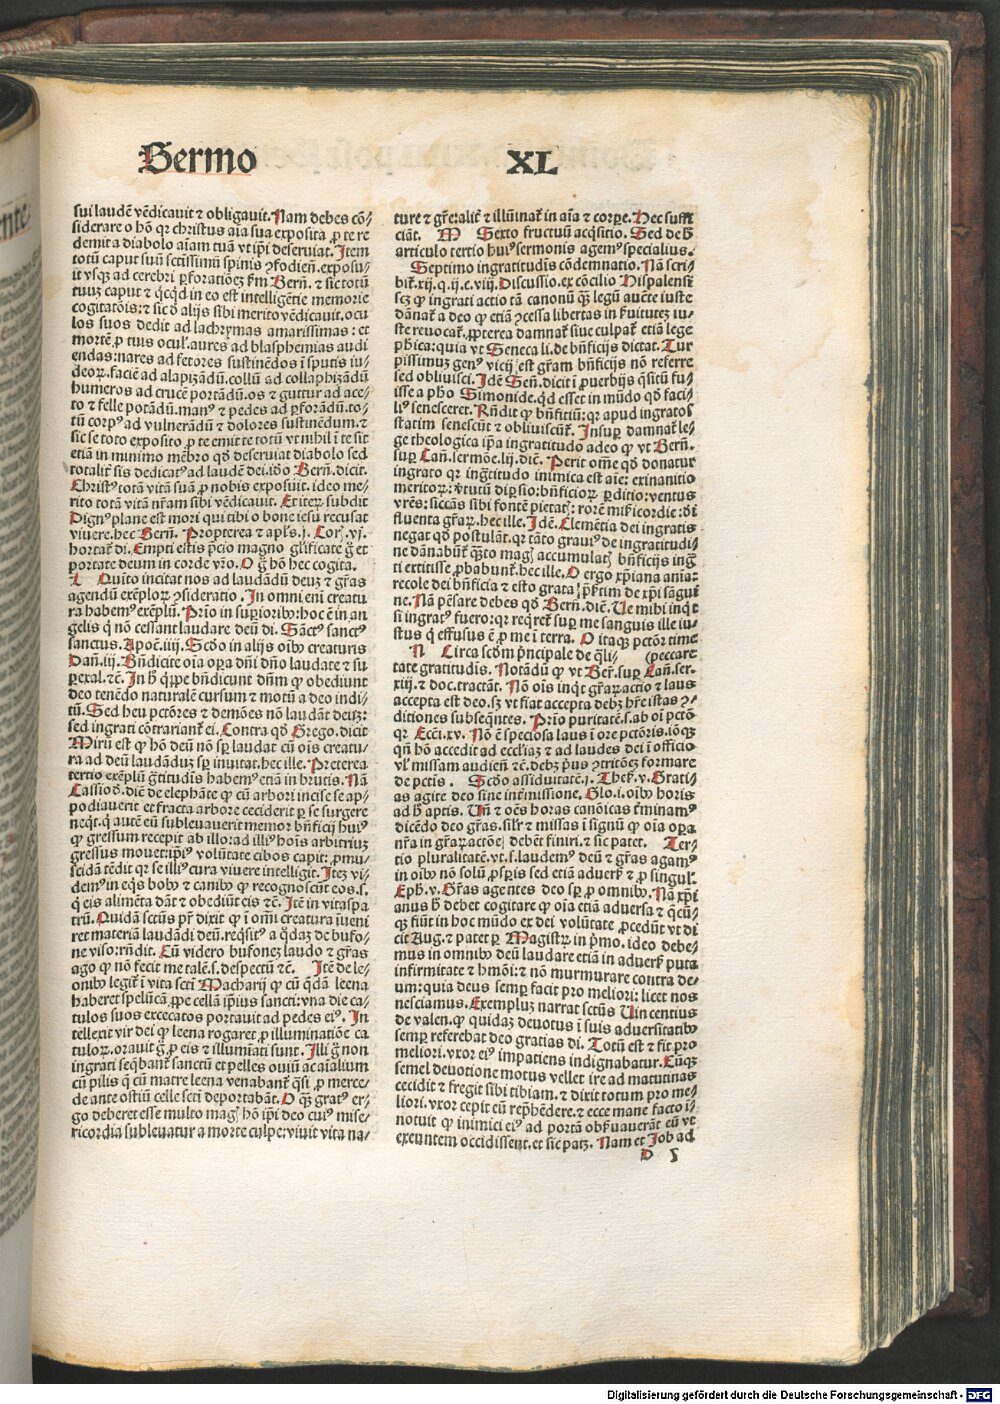 Sermo XL
sui laudē vēdicauit ⁊ obligauit. Nam debes cō⸗
siderare o hō qꝛ christus aīa sua exposita ꝓ te re
demit a diabolo aīam tuā vt ipī deseruiat. Item
totū caput suū sctissimū spinis ꝯfodien. exposu⸗
it vsqꝫ ad cerebri ꝑforatiōeꝫ ẜm Bern. ⁊ sic totū
tuuꝫ caput ⁊ qͥcqͥd in eo est intelligētie memorie
cogitatōis: ⁊ sic ō alijs sibi merito vēdicauit. ocu
los suos dedit ad lachrymas amarissimas: et
mortē ꝓ tuis ocul. aures ad blasphemias audi
endas: nares ad fetores sustinēdos ī sputis iu⸗
deoꝝ. faciē ad alapizādū. collū ad collaphizādū
humeros ad crucē portādū. os ⁊ guttur ad ace⸗
to ⁊ felle potādū. manꝰ ⁊ pedes ad ꝑforādū. to⸗
tū corpꝰ ad vulnerādū ⁊ dolores sustinēdum. ⁊
sic se toto exposito ꝓ te emit te totū vt nihil ī te sit
etiā in minimo mēbro qd deseruiat diabolo sed
totalit sis dedicatꝰ ad laudē dei. iō Bern. dicit.
Christꝰ totā vitā suā ꝓ nobis exposuit. ideo me⸗
rito totā vitā nrām sibi vēdicauit. Et iteꝝ subdit
Dignꝰ plane est mori qui tibi o bone iesu recusat
viuere. hec Bern. Propterea ⁊ apls. j. Cor. vj.
hortat di. Empti estis p̄cio magno glīficate g̊ et
portate deum in corde vro. O g̊ hō hec cogita.
L Quīto incitat nos ad laudādū deuꝫ ⁊ grās
agendū exēploꝝ ꝯsideratio. In omni enī creatu
ra habemꝰ exēplū. Prīo in suꝑioribꝰ: hoc ē in an
gelis q̄ nō cessant laudare deū di. Sanctꝰ sanctꝰ
sanctus. Apoc. iiij. Scdo in alijs oībꝰ creaturis
Dan. iij. Bndicite oīa oꝑa dnī dno laudate ⁊ su
ꝑexal. ⁊c. In h̄ qͥppe bndicunt dnm ꝙ obediunt
deo tenēdo naturalē cursum ⁊ motū a deo indi⸗
tū. Sed heu pctōres ⁊ demōes nō laudāt deuꝫ:
sed ingrati cōtrariant ei. Contra qd Grego. dicit
Mirū est ꝙ hō deū nō sꝑ laudat cū oīs creatu⸗
ra ad deū laudāduꝫ sꝑ inuitat. hec ille. Preterea
tertio exēplū gtitudīs habemꝰ etiā in brutis. Nā
Cassiod. diē de elephāte ꝙ cū arbori incise se ap⸗
podiauerit et fracta arbore ceciderit ꝑ se surgere
neqͥt. q̄ autē eū subleuauerit memor bnficij huiꝰ
ꝙ gressum recepit ab illo: ad illiꝰ hoīs arbitriuꝫ
gressus mouet: ipiꝰ volūtate cibos capit: ꝓmu⸗
scidā tēdit qꝛ se illiꝰ cura viuere intelligit. Iteꝫ vi⸗
demꝰ in eqͥs bobꝰ ⁊ canibꝰ ꝙ recognoscūt eos. s.
q̄ eis alimēta dāt ⁊ obediūt eis ⁊c. Itē in vitaspa
trū. Quidā sctūs pr dixit ꝙ ī omī creatura īueni
ret materiā laudādi deū. reqͥsitꝰ a qͥdaꝫ de bufo⸗
ne viso: rndit. Cū videro bufoneꝫ laudo ⁊ grās
ago ꝙ nō fecit me talē. s. despectū ⁊c. Itē de le⸗
onibꝰ legit ī vita scti Macharij ꝙ cū qͥdā leena
haberet spelūcā ꝓpe cellā ipius sancti: vna die ca⸗
tulos suos excecatos portauit ad pedes eiꝰ. In
tellexit vir dei ꝙ leena rogaret ꝓ illuminatiōe ca
tuloꝝ. orauit g̊ ꝓ eis ⁊ illumīati sunt. Illi g̊ non
ingrati seqbant sanctū et pelles ouiū ac aīalium
cū pilis q̄ cū matre leena venabant qͥsi ꝓ merce⸗
de ante ostiū celle scti deportabāt. O qͣꝫ gratꝰ er⸗
go deberet esse multo magꝭ hō ipi deo cuiꝰ mise⸗
ricordia subleuatur a morte culpe: viuit vita na⸗
ture ⁊ gre: alit ⁊ illūinat in aīa ⁊ corpe. Hec suffi
ciāt. M Sexto fructuū acqͥsitio. Sed de h̄
articulo tertio huiꝰ sermonis agemꝰ specialius.
Septimo ingratitudīs cōdemnatio. Nā scri⸗
bit. xij. q. ij. c. viij. Discussio. ex cōcilio Hispalensi
scꝫ ꝙ ingrati actio tā canonū qͣꝫ legū auēte iuste
dānat a deo ꝙ etiā ꝯcessa libertas in ẜuituteꝫ iu⸗
ste reuocat. ꝓpterea damnat siue culpat etiā lege
phica: quia vt Seneca li. de bnficijs dictat. Tur
pissimuꝫ genꝰ vicij est grām bnficijs nō referre
sed obliuisci. Idē Sen. dicit ī ꝓuerbijs q̄situ fu⸗
isse a pho Simonide. qd esset in mūdo qd faci⸗
liꝰ senesceret. Rndit ꝙ bnfitiū: qꝛ apud ingratos
statim senescūt ⁊ obliuiscūt. Insuꝑ damnat le⸗
ge theologica ipa ingratitudo adeo ꝙ vt Bern.
suꝑ Can. sermōe. lij. diē. Perit om̄e qd donatur
ingrato qꝛ ingtitudo inimica est aīe: exinanitio
meritoꝝ: v̄tutū diꝑsio: bnficioꝝ ꝑditio: ventus
vrēs: siccās sibi fontē pietatꝭ: rorē mīẜicordie: d̄i
fluenta grāꝝ. hec ille. Idē. Clemētia dei ingratis
negat qd postulāt. qꝛ tāto grauiꝰ de ingratitudi⸗
ne dānabūt qͣsto magꝭ accumulatꝭ bnficijs ing
ti extitisse ꝓbabunt. hec ille. O ergo xpiana anīa:
recole dei bnficia ⁊ esto grata p̄sertim de xpi sagui
ne. Nā pēsare debes qd Bern. diē. Ue mihi inqͥt
si ingratꝰ fuero: qꝛ reqret suꝑ me sanguis ille iu⸗
stus q̄ effusus ē ꝓ me ī terra. O itaqꝫ pctōr time
N Circa scdm p̄ncipale de qli⸗ (peccare
tate gratitudis. Notādū ꝙ vt Ber. suꝑ Can. ser.
xiij. ⁊ doc. tractāt. Nō oīs inqͥt grāꝝ actio ⁊ laus
accepta est deo. sꝫ vt fiat accepta debꝫ hre istas ꝯ⸗
ditiones subseqntes. Prīo puritatē. s. ab oī pctō
qꝛ Ecci. xv. Nō ē speciosa laus ī ore pctōris. iō qͣꝫ
qn hō accedit ad eccliaꝫ ⁊ ad laudes dei ī officio
vl missam audien ⁊c. debꝫ pus ꝯtritōeꝫ formare
de pctis. Scdo assiduitatē. j. Thes. v. Grati⸗
as agite deo sine intmissione. Glo. i. oībꝰ horis
ad h̄ aptis. Un ⁊ oēs horas canōicas tminamꝰ
dicēdo deo grās. silr ⁊ missas ī signū ꝙ oīa oꝑa
nrā in grāꝝ actōe debēt finiri. ⁊ sic patet. Ter⸗
tio pluralitatē. vt. s. laudemꝰ deū ⁊ grās agamꝰ
in oībꝰ nō solū ꝓspis sed etiā aduerẜ ⁊ ꝓ singul.
Eph. v. Grās agentes deo sꝑ ꝓ omnibꝰ. Nā xpī
anus h̄ debet cogitare ꝙ oīa etiā aduersa ⁊ q̄cūqꝫ
qͥ fiūt in hoc mūdo ex dei volūtate ꝓcedūt vt di
cit Aug. ⁊ patet ꝑ Magistꝝ in pmo. ideo debe⸗
mus in omnibꝰ deū laudare etiā in aduerẜ puta
infirmitate ⁊ hmōi: ⁊ nō murmurare contra de⸗
um: quia deus semꝑ facit pro meliori: licet nos
nesciamus. Exempluꝫ narrat sctūs Uincentius
de valen. ꝙ quidaꝫ deuotus ī suis aduersitatibꝰ
semꝑ referebat deo gratias di. Totū est ⁊ fit pro
meliori. vxor eiꝰ impatiens indignabatur. Cūqꝫ
semel deuotione motus vellet ire ad matutinas
cecidit ⁊ fregit sibi tibiam. ⁊ dixit totum pro me⸗
liori. vxor cepit eū rephēdere. ⁊ ecce mane facto i⸗
notuit ꝙ inimici eiꝰ ad portā obẜuauerāt eū vt
exeuntem occidissent. et sic patꝫ. Nam et Job ad
D 5
Digitalisierung gefördert durch die Deutsche Forschungsgemeinschaft - DFG